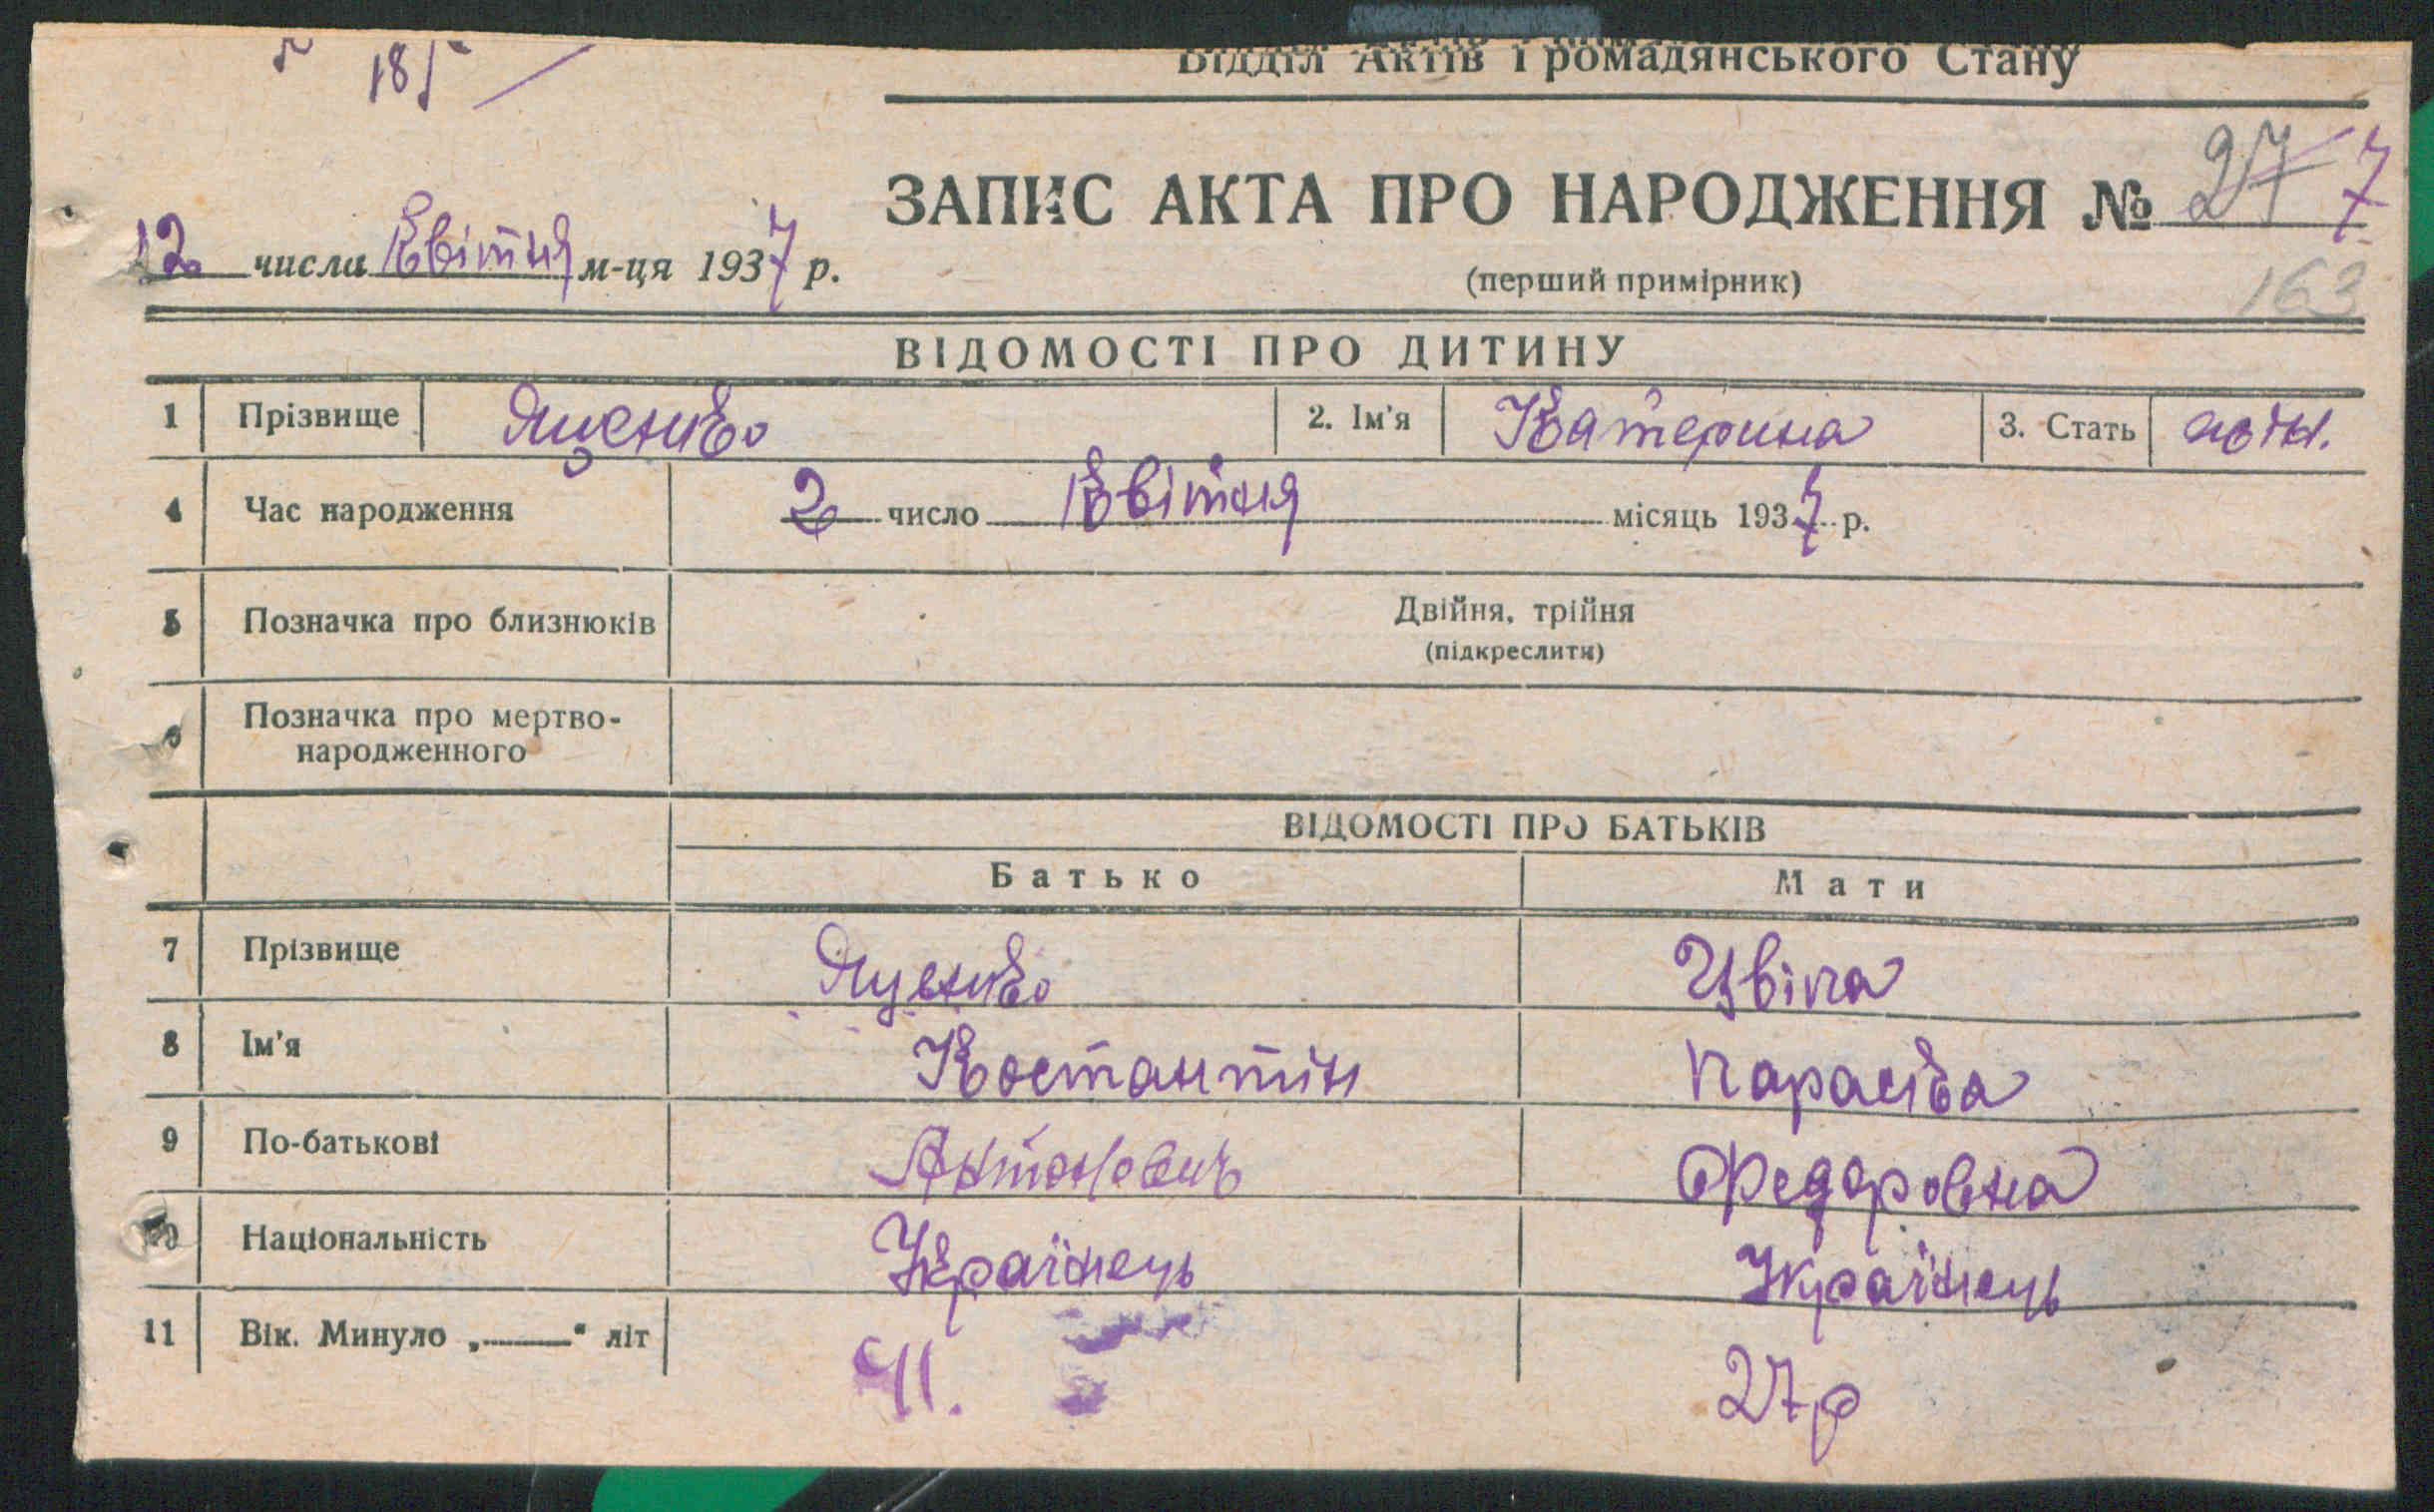 185
Відділ Актів Громадянського Стану
ЗАПИС АКТА ПРО НАРОДЖЕННЯ № 27 7
12 числа Квітня м-ця 1937 р.
(перший примірник)
163
ВІДОМОСТІ ПРО ДИТИНУ
1 Прізвище Яценко 2. Ім'я Катерина 3. Стать
4 Час народження 2 число Квітня місяць 1937 р.
5 Позначка про близнюків Двійня, трійня
(підкреслити)
6 Позначка про мертво-
народженного
ВІДОМОСТІ ПРО БАТЬКІВ
Батько Мати
7 Прізвище Яценко Цвіла
8 Ім'я Костантин Параска
9 По-батькові Антонович Федоровна
10 Національність Українець Українець
11 Вік. Минуло „——" літ 41. 27 р